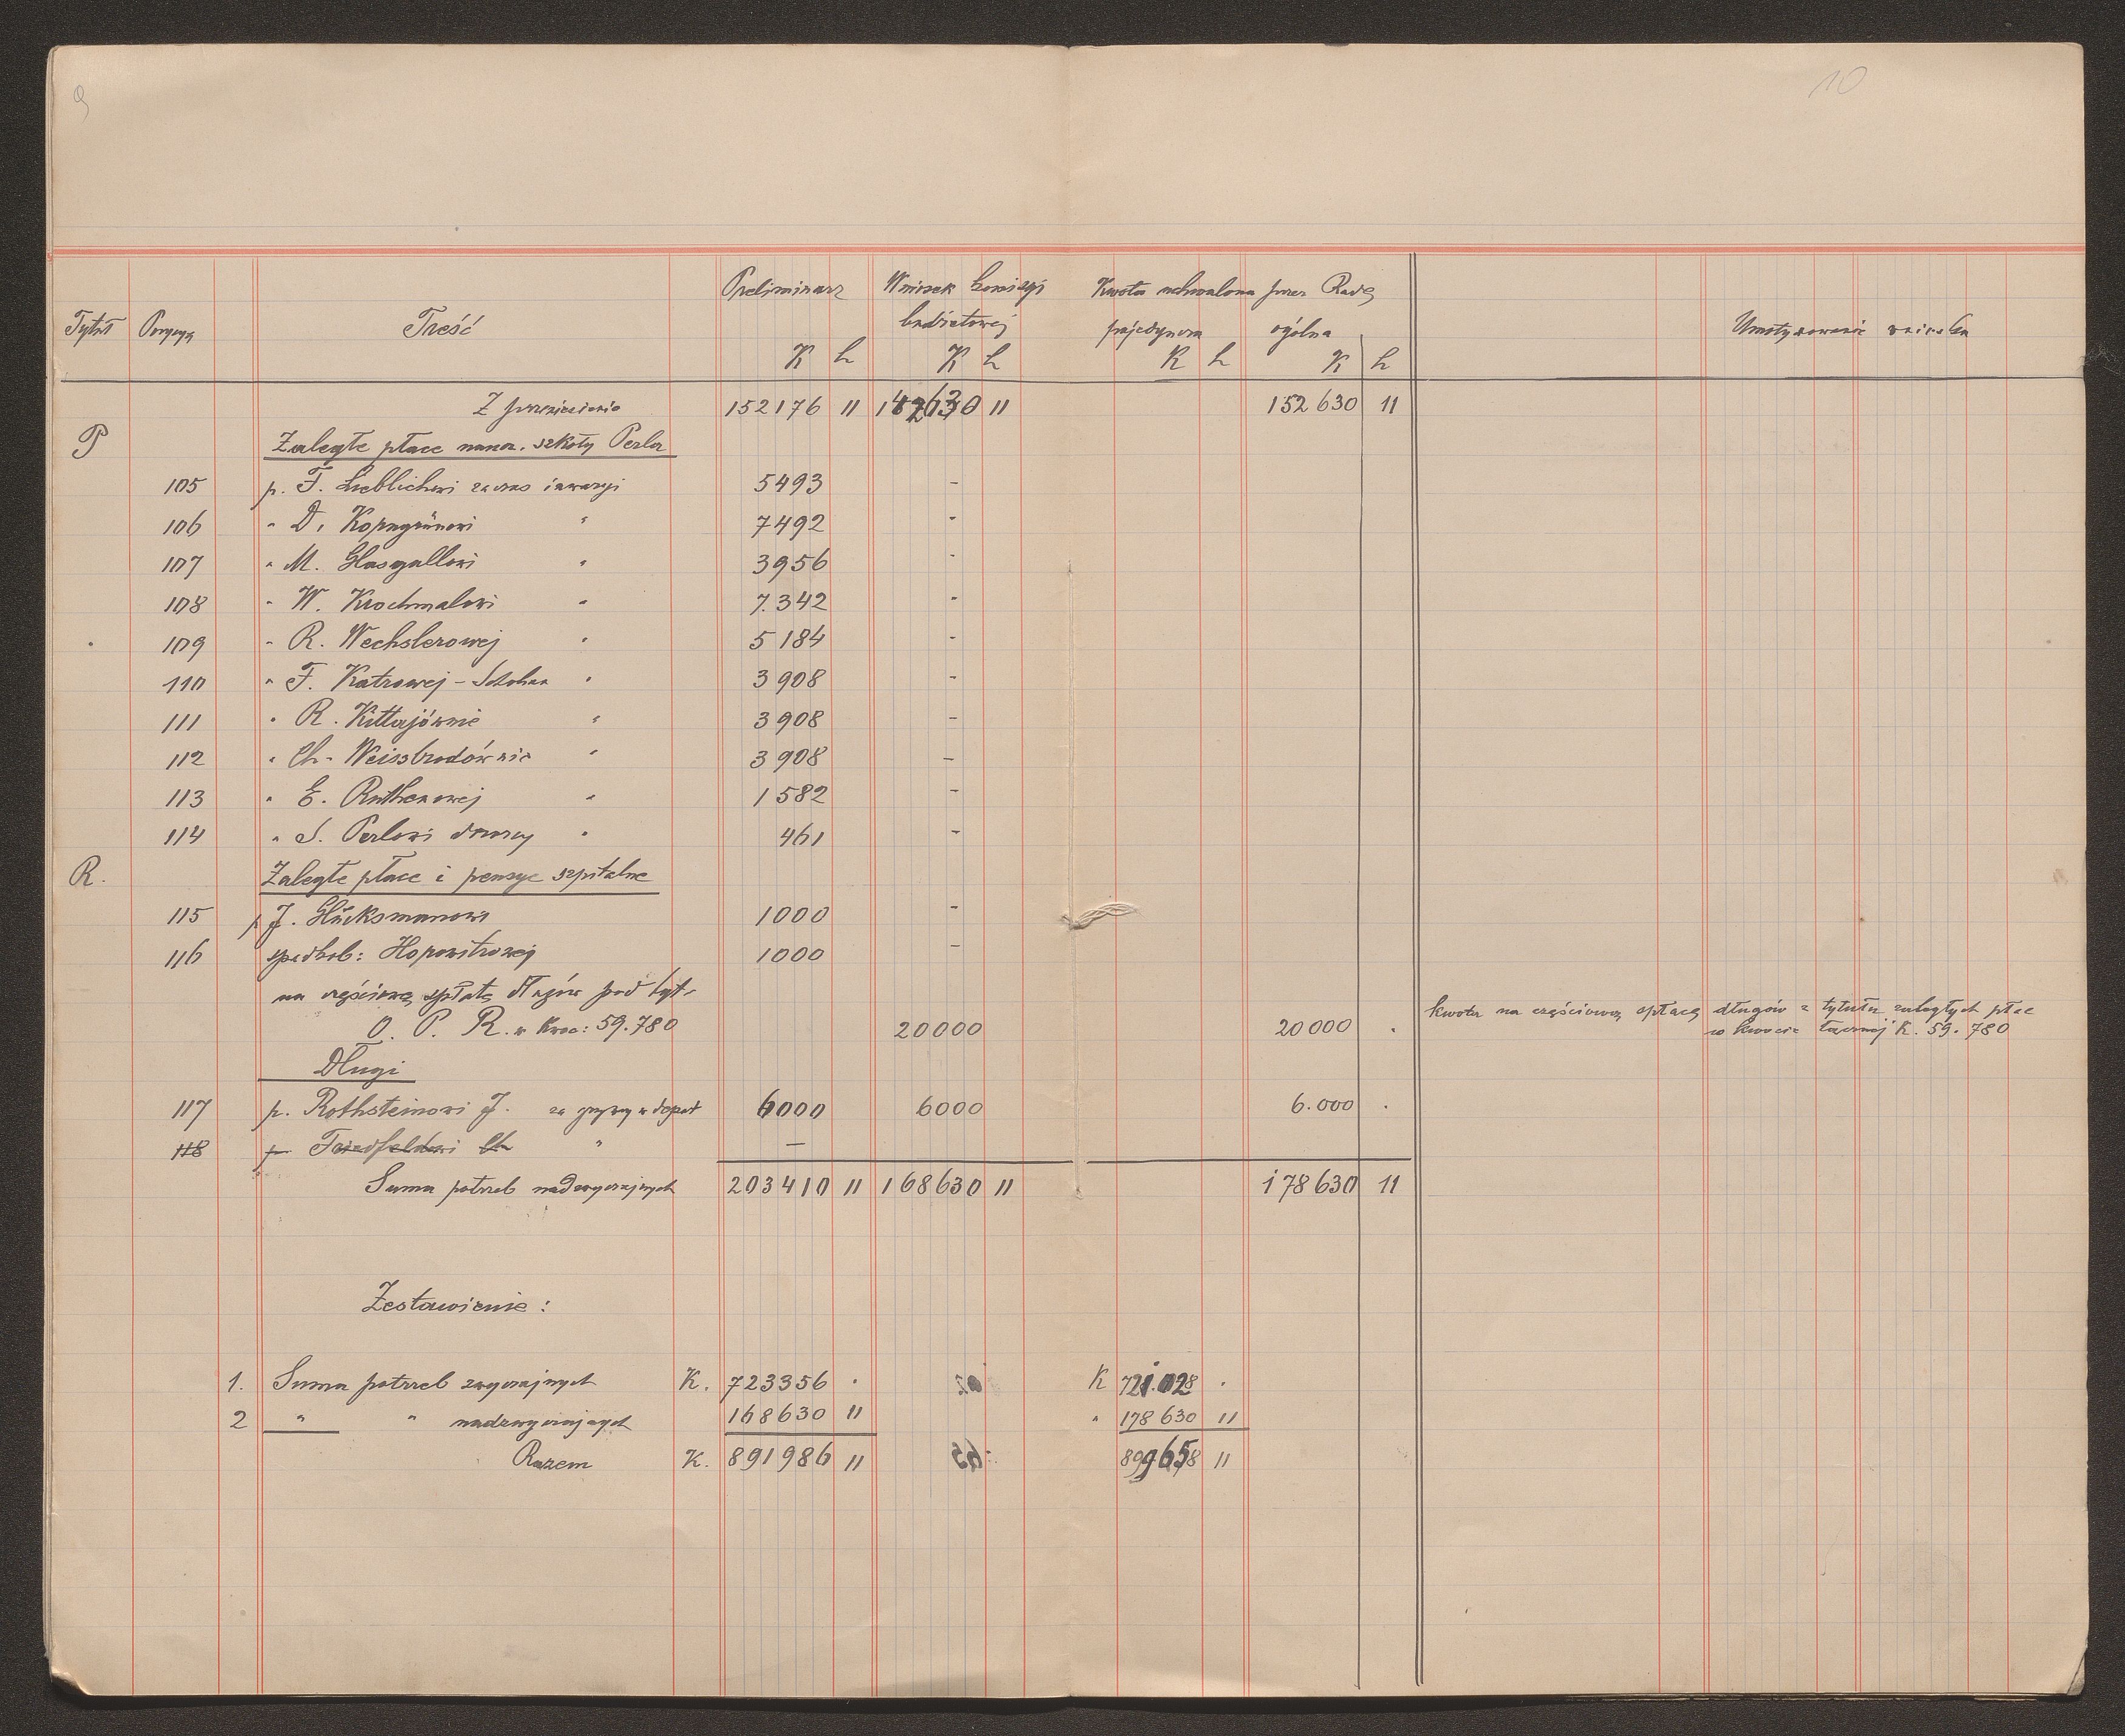 9
10
Tytuł Pozycya Treść Preliminarz Wniosek komisyi budżetowej Kwota uchwalona przez Radę Umotywowanie wniosku
pojedyncza ogólna
K h K h K h K h
Z przeniesienia 152176 11 142630 11 152630 11
P Zaległe płace naucz. szkoły Perla
105 p. F. Lieblichowi za czas inwazyi 5493 -
106 " D. Korngrünowi " 7492 -
107 " M. Glasgallowi " 3956 -
108 " W. Krochmalowi " 7.342 -
109 " R. Wechslerowej " 5184 -
110 " F. Katzowej - " 3908 -
111 " R. Kittajównie " 3908 -
112 " Ch. Weissbrodównie " 3908 -
113 " E. Ruthenowej " 1582 -
114 " S. Perlowi dozorcy " 461 -
R. Zaległe płace i pensye szpitalne
115 p J. Glücksmanowi 1000 -
116 spadkob: Horowitzowej 1000 -
na częściową spłatę długów pod tyt.
O. P. R. w kwoc: 59.780 20000 20000 .
kwota na częściową spłatę długów z tytułu zaległych płac
w kwocie łącznej K. 59.780
Długi
117 p. Rothsteinowi J. za grzywny 6000 6000 6.000 .
118 p. Friedfeldowi Ch " -
Suma potrzeb nadzwyczajnych 203410 11 168630 11 178630 11
Zestawienie:
1. Suma potrzeb zwyczajnych K. 723356 . K 721.028 .
2 " " nadzwyczajnych 168630 11 " 178630 11
Razem K. 891986 11 899658 11